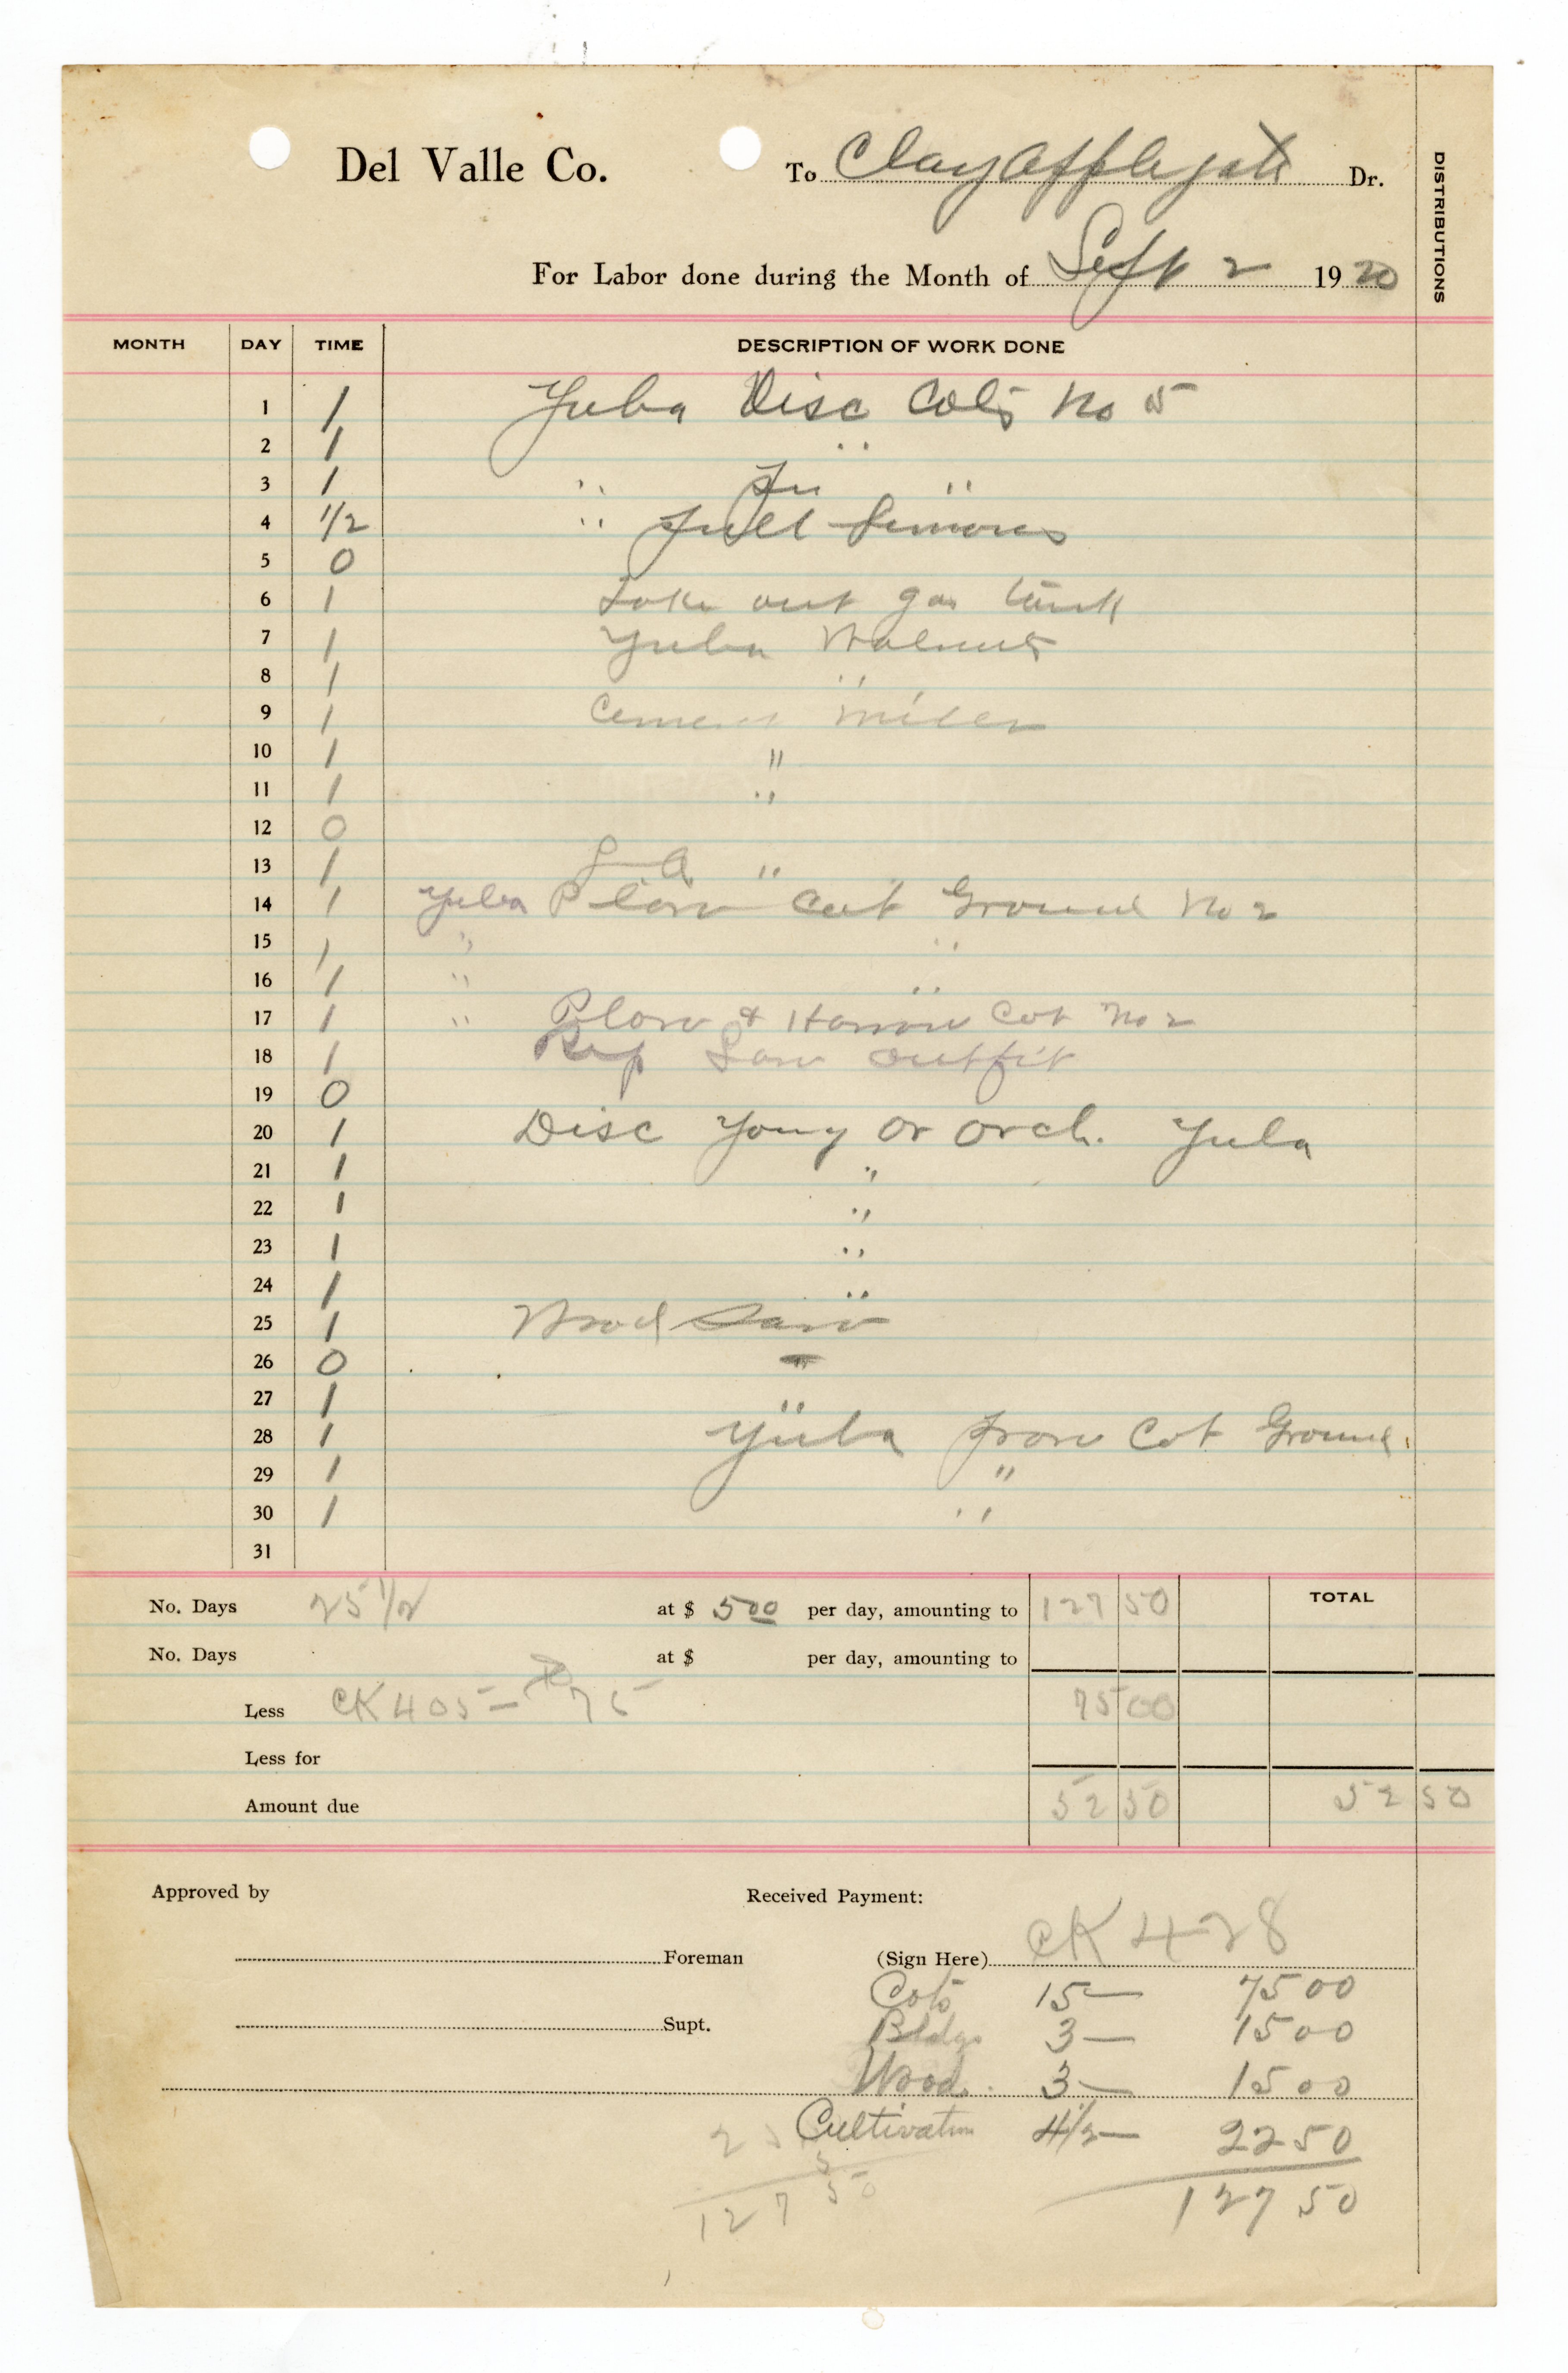 Del Valle Co. To Clay Applegate Dr.
DISTRIBUTIONS
For Labor done during the Month of Sept 2 1920
MONTH DAY TIME DESCRIPTION OF WORK DONE
1 1 Yuba Disc Cots No 5
2 1 "
3 1 " "
4 1/2 " Pull
5 0
6 1 Take out gas tank
7 1 Yuba Walnuts
8 1 "
9 1 Cement Mixer
10 1 "
11 1 "
12 0
13 1 L A "
14 1 Yuba Plow Cot Ground No 2
15 1 " "
16 1 " "
17 1 " Plow & Harrow Cot No 2
18 1 Rep Saw outfit
19 0
20 1 Disc Young Or Orch. Yuba
21 1 "
22 1 "
23 1 "
24 1 "
25 1 Wood Saw
26 0
27 1 "
28 1 Yuba Cot Ground
29 1 "
30 1 "
31
No. Days 25 1/2 at $ 5.00 per day, amounting to 127 50 TOTAL
No. Days at $ per day, amounting to
Less CK 405 - 75 75 00
Less for
Amount due 52 50 52 50
Approved by Received Payment:
Foreman (Sign Here) CK 428
Cots 15 - 75 00
Supt. Bldgs 3 - 15 00
Wood 3 - 15 00
Cultivation 4 1/2 - 22 50
5
127 50 127 50